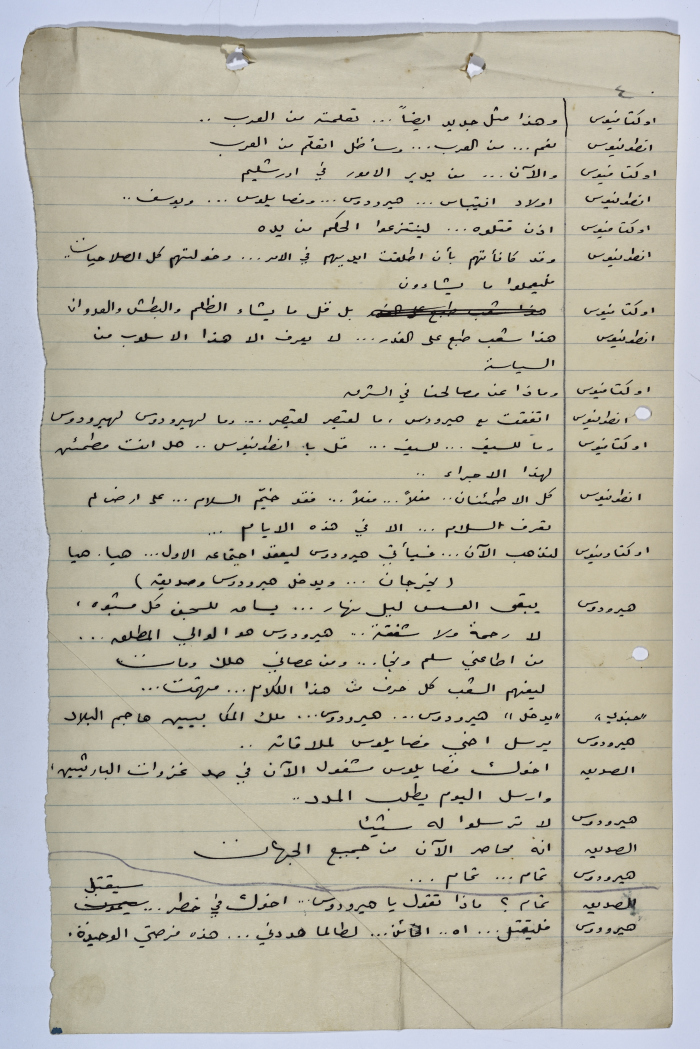 ٤
اوكتافيوس وهذا مثل جديد ايضاً ... تعلمته من العرب ..
انطونيوس نعم ... من العرب ... وسأظل اتعلم من العرب
اوكتافيوس والآن ... من يدير الامور في اورشليم
انطونيوس اولاد انتيباس ... هيرودوس ... وفصايلوس ... ويوسف ..
اوكتافيوس اذن قتلوه ... لينتزعوا الحكم من يده
انطونيوس وقد كافأتهم بأن اطلقت ايديهم في الامر ... وخولتهم كل الصلاحيات ..
فليفعلوا ما يشاؤون
اوكتافيوس بل قل ما يشاء الظلم والبطش والعدوان
انطونيوس هذا شعب طبع على الغدر ... لا يعرف الا هذا الاسلوب من
السياسة
اوكتافيوس وماذا عن مصالحنا في الشرق
انطونيوس اتفقت مع هيرودس ، ما لقيصر لقيصر ... وما لهيرودوس لهيرودوس
اوكتافيوس وما للسيف ... للسيف ... قل يا انطونيوس .. هل انت مطمئن
لهذا الاجراء ..
انطونيوس كل الاطمئنان .. فعلاً ... فعلاً ... فقد خيّم السلام ... على ارض لم
تعرف السلام ... الا في هذه الايام ...
اوكتافيوس لنذهب الآن ... فسيأتي هيرودوس ليعقد اجتماعه الاول ... هيا . هيا
( يخرجان ... ويدخل هيرودوس وصديقه )
هيرودوس يبقى العسس ليل نهار ... يساق للسجن كل مشبوه ،
لا رحمة ولا شفقة ... هيرودوس هو الوالي المطلق ...
من اطاعني سلم ونجا ... ومن عصاني هلك ومات
ليفهم الشعب كل حرف من هذا الكلام ... فهمت ...
"جندي" "يدخل" هيرودوس ... هيرودوس ... ملك المكابيين هاجم البلاد
هيرودوس يرسل اخي فصايلوس لملاقاته ..
الصديق اخوك فصايلوس مشغول الآن في صد غزوات البارثيين ،
وارسل اليوم يطلب المدد ..
هيرودوس لا ترسلوا له شيئا
الصديق انه محاصر الآن من جميع الجهات
هيرودوس تمام ... تمام ....
الصديق تمام ؟ ماذا تقول يا هيرودوس ... اخوك في خطر ... سيقتل
هيرودوس فليقتل ... اه .. الخائن ... لطالما هددني ... هذه فرصتي الوحيدة .